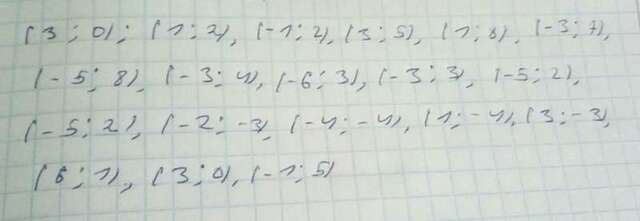 (3; 0); (1; 2), (-1; 2), (3; 5), (1; 8), (-3; 7),
(-5; 8), (-3; 4), (-6; 3), (-3; 3), (-5; 2),
(-5; 2), (-2; -3), (-4; -4), (1; -4), (3; -3),
(6; 1), (3; 0), (-1; 5)